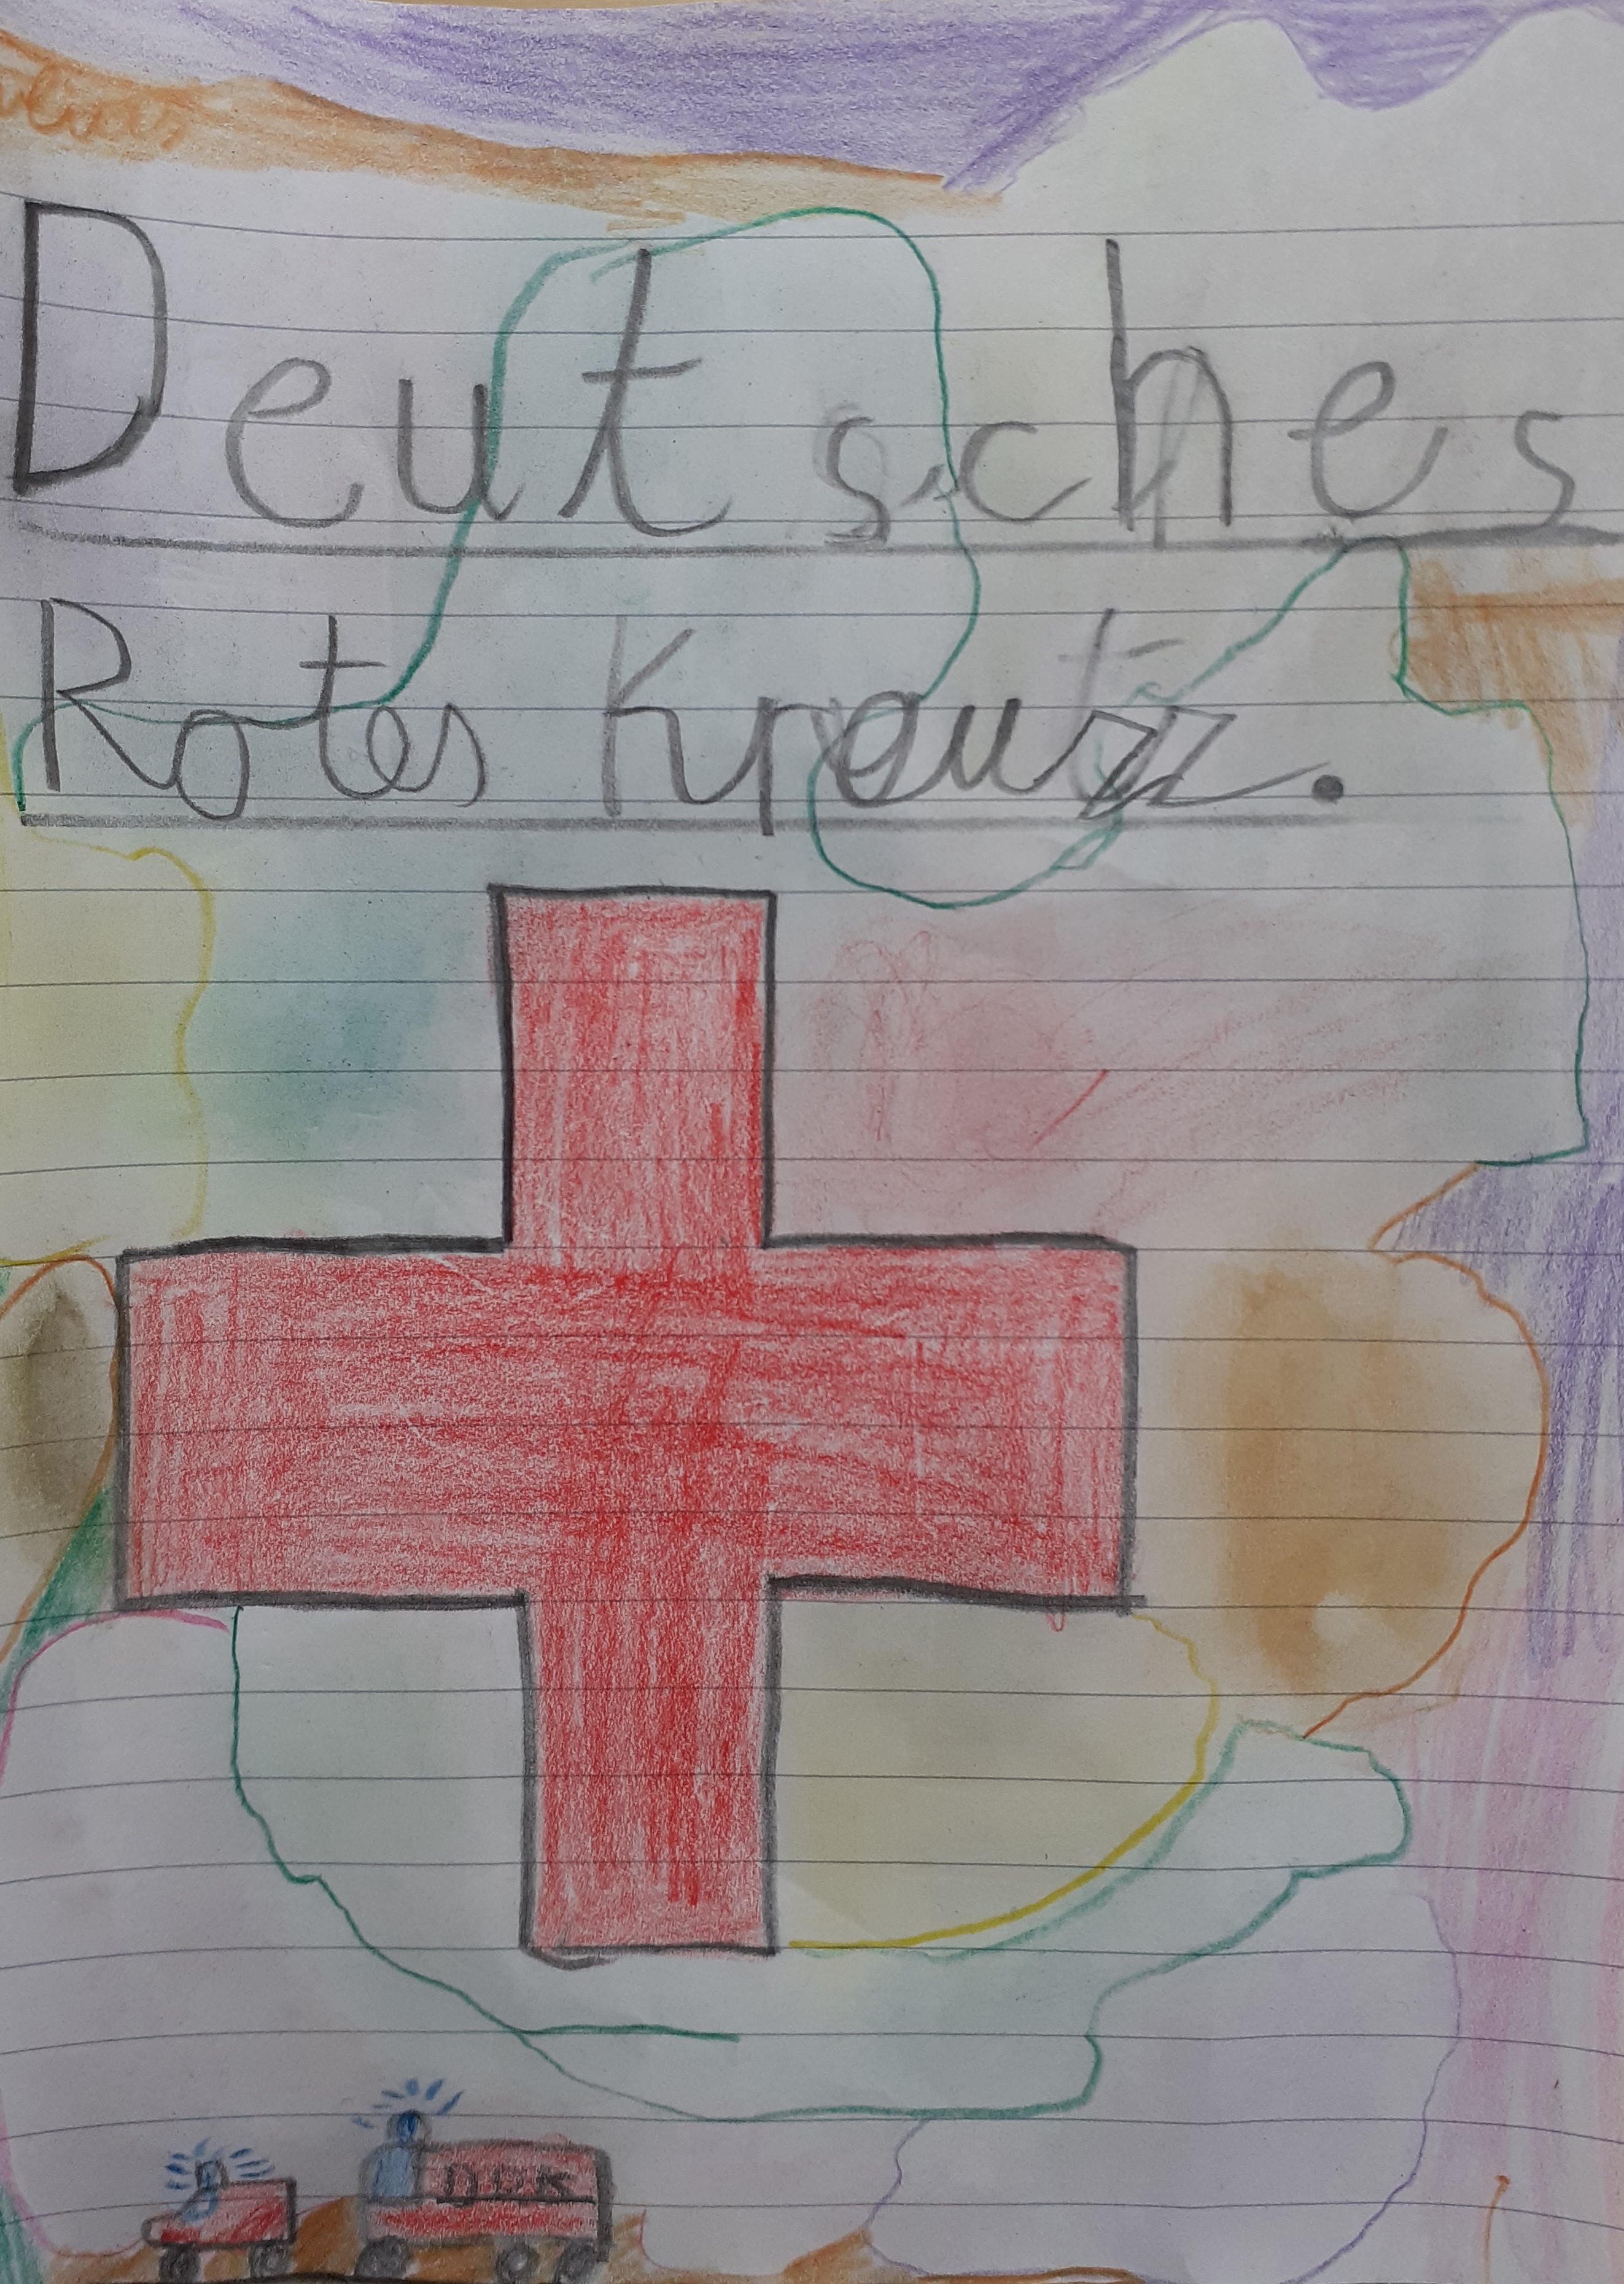 Deutsches
Rotes Kreuz.
DRK